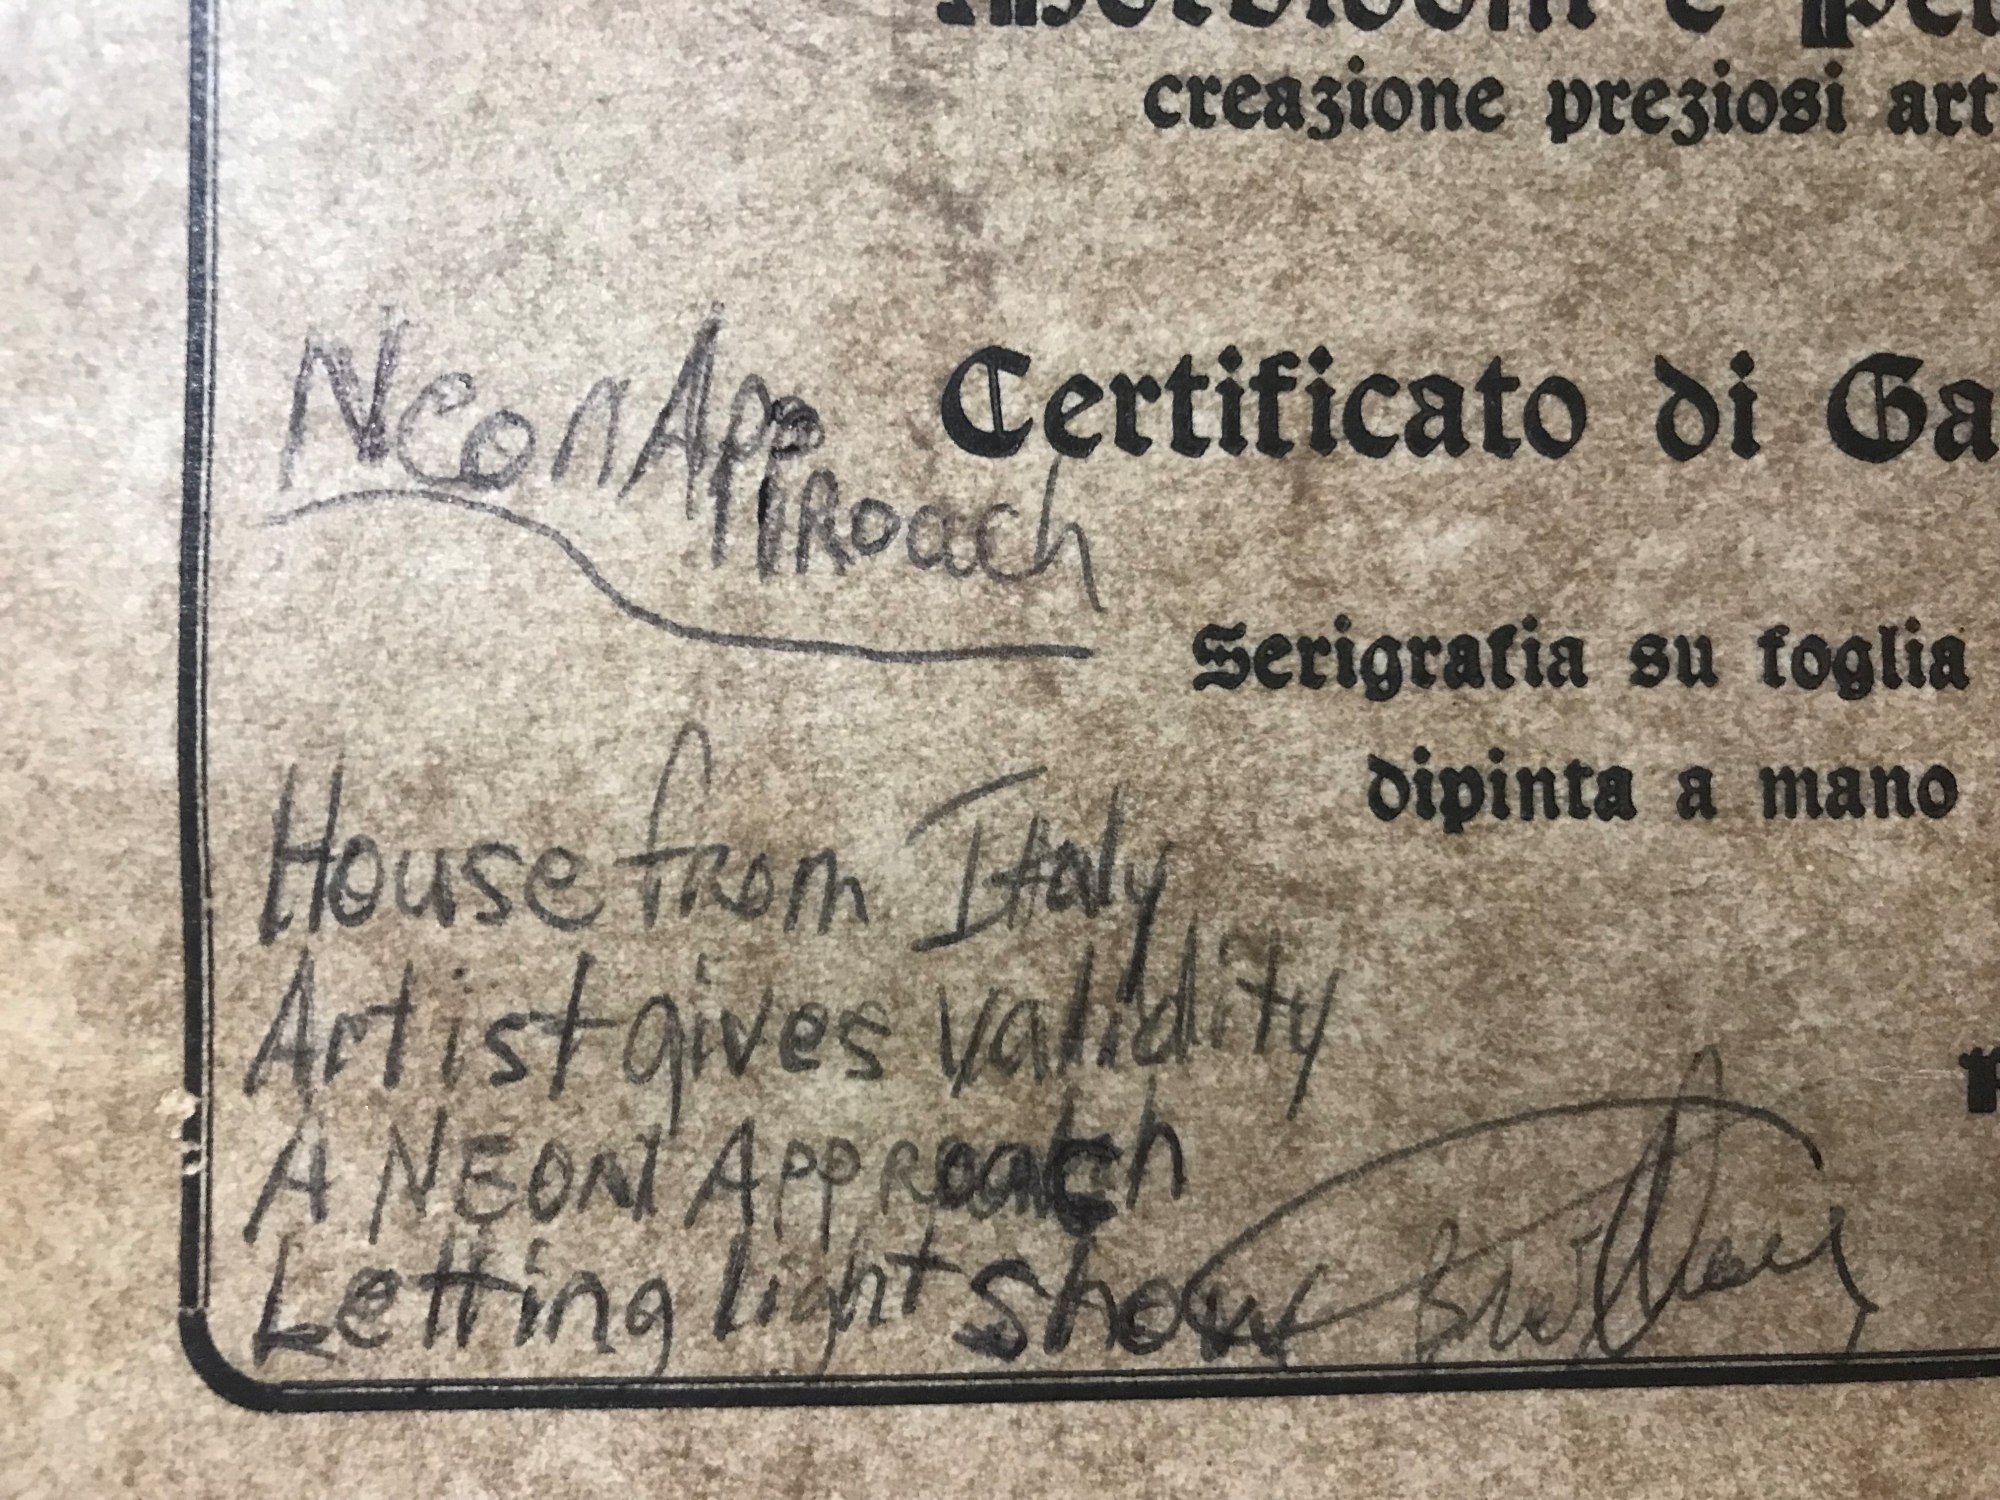 creazione preziosi art
Certificato di Ga
Neon Approach
Serigrafia su foglia
dipinta a mano
House from Italy
Artist gives validity
A NEON Approach
Letting light show